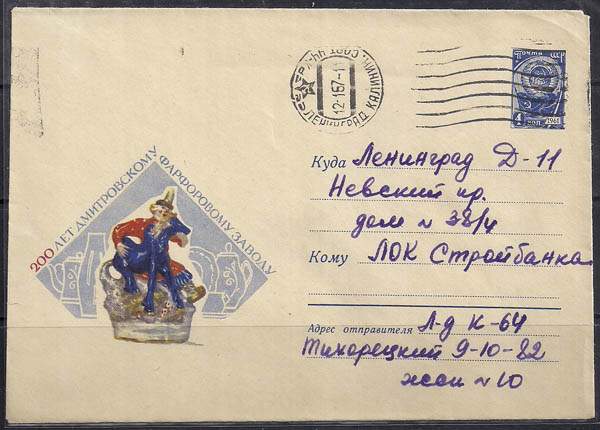 12-1-67-1
ЛЕНИНГРАД КАЛИНИН.
ПОЧТА СССР
4 КОП 1961
200 ЛЕТ ДМИТРОВСКОМУ ФАРФОРОВОМУ ЗАВОДУ
Куда Ленинград Д-11
Невский пр.
дом № 38/4
Кому ЛОК Стройбанка
Адрес отправителя Л-д К-64
Тихорецкий 9-10-82
жск №10